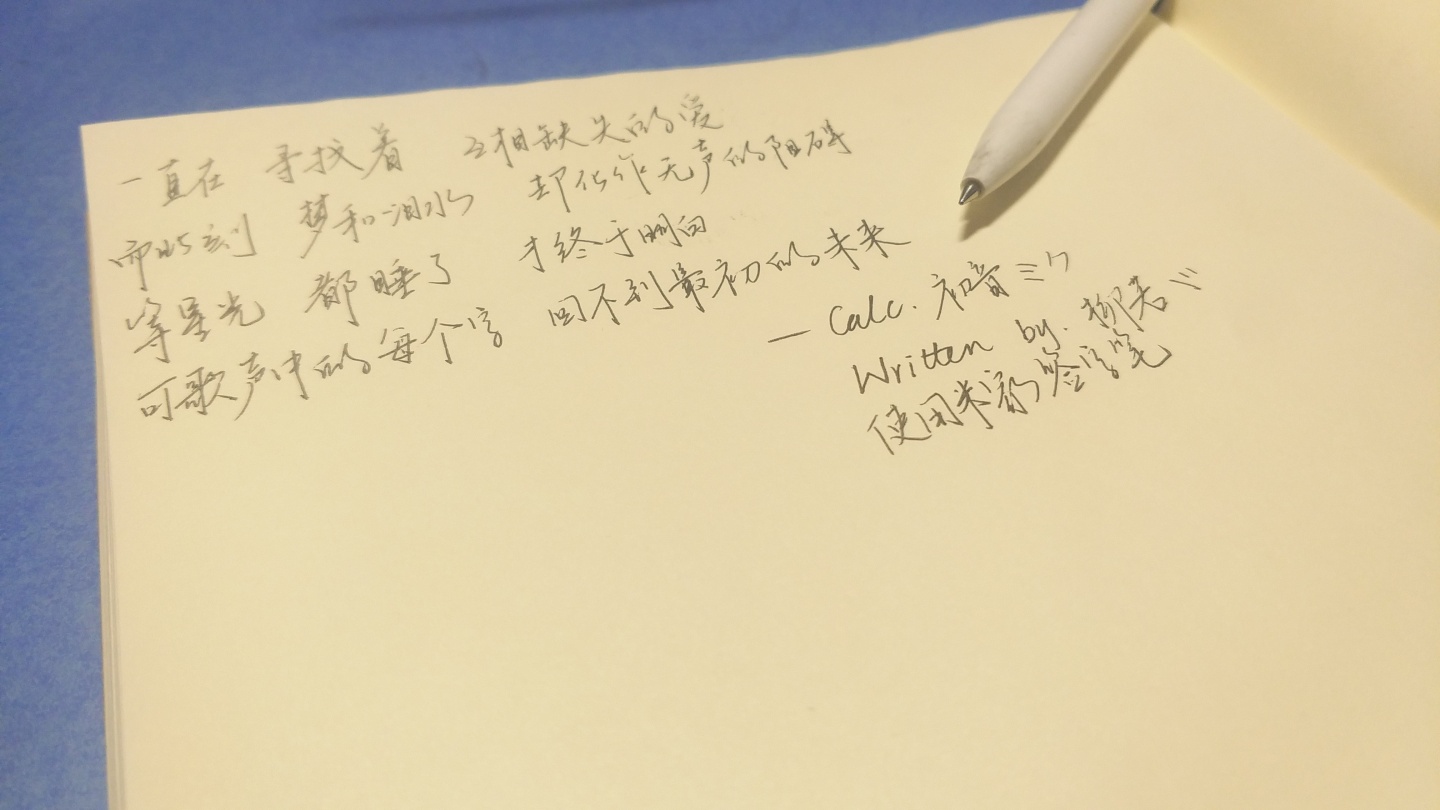 一直在 寻找着 互相缺失的爱
而此刻 梦和泪水 却化作无声的阻碍
等星光 都睡了 才终于明白
可歌声中的每个字 回不到最初的未来
— Calc. 初音ミク
Written by. 柳若
使用米家签字笔